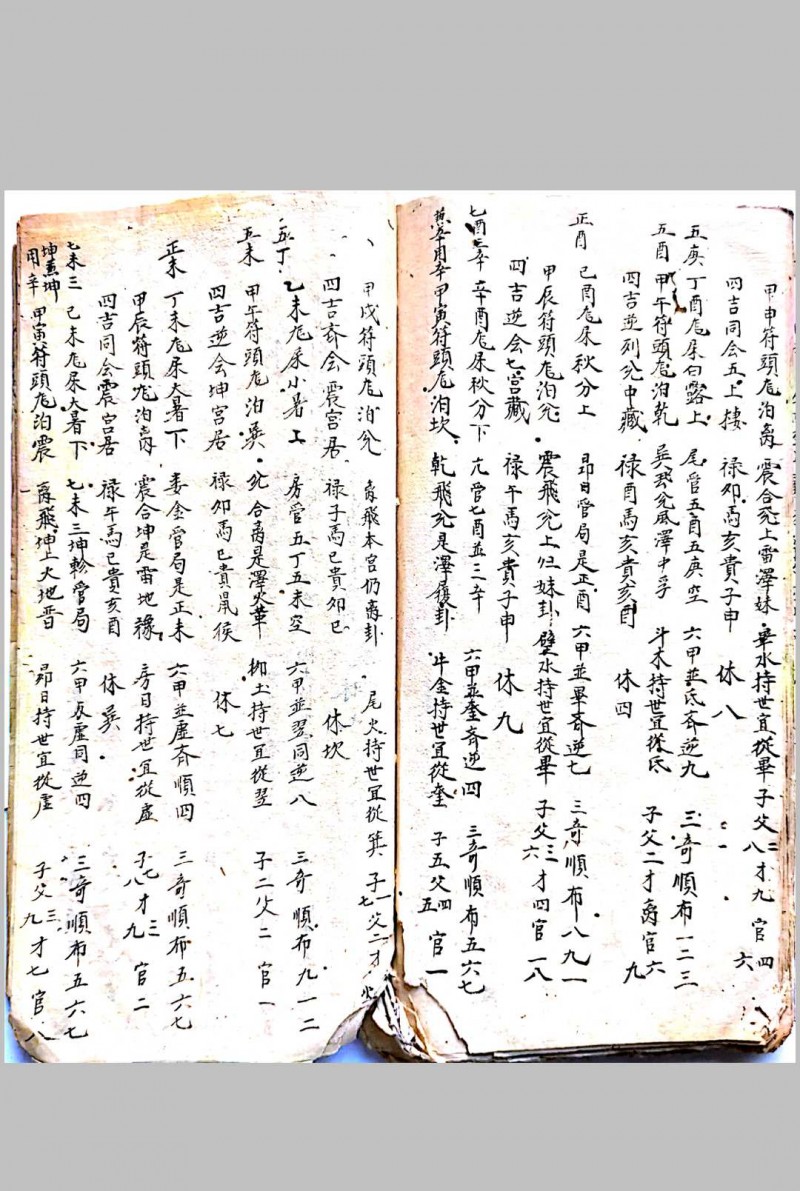 甲申符頭飛泊离 震合兌上雷澤妹 畢水持世宜從畢 子父二八才九 官四六
四吉同会五上捿 禄卯馬亥貴子申 休八
五庚 丁酉飛尿白露上 尾管五酉五庚空 六甲並氐斉逆九 三奇順布一二三
五酉 甲午符頭飛泊乾 巽飛兌風澤中孚 斗木持世宜從氐 子父二才离官六九
四吉逆列兌中藏 禄酉馬亥貴亥酉 休四
正酉 己酉飛尿秋分上 昴日管局是正酉 六甲並畢斉逆七 三奇順布八九一
甲辰符頭飛泊兌 震飛兌上归妹卦 壁水持世宜從畢 子父三六才四官一八
四吉逆会七宫藏 禄午馬亥貴子申 休九
七酉三辛 辛酉飛尿秋分下 亢管七酉並三辛 六甲並奎斉逆四 三奇順布五六七
用辛 甲寅符頭飛泊坎 乾飛兌是澤履卦 牛金持世宜從奎 子五父四五 官一
甲戌符頭飛泊兌 离飛本宫仍离卦 尾火持世宜從箕 子一七父二才
四吉斉会震宫居 禄子馬己貴卯己 休坎
五丁 乙未飛尿小暑上 房管五丁五未空 六甲並翌同逆八 三奇順布九一二
五未 甲午符頭飛泊巽 兌合离是澤火革 柳土持世宜從翌 子二父二 官一
四吉逆会坤宫居 禄卯馬巳貴鼠侯 休七
正未 丁未飛尿大暑下 娄金管局是正未 六甲並虛斉順四 三奇順布五六七
甲辰符頭飛泊离 震合坤是雷地豫 房日持世宜從虛 子七八才九三 官二
四吉同会震宫居 禄午馬己貴亥酉 休巽
七未三 己未飛尿大暑下 七未三坤軫管局 六甲反虛同逆四 三奇順布五六七
坤䓍坤用辛 甲寅符頭飛泊震 离飛坤上火地晋 昴日持世宜從虛 子父九三才七官八